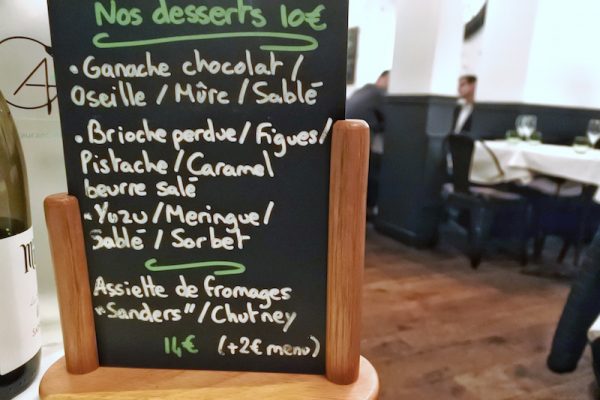 Nos desserts 10€
• Ganache chocolat /
Oseille / Mûre / Sablé
• Brioche perdue / Figues /
Pistache / Caramel
beurre salé
• Yuzu / Meringue /
Sablé / Sorbet
Assiette de fromages
"Sanders" / Chutney
14€ (+2€ menu)